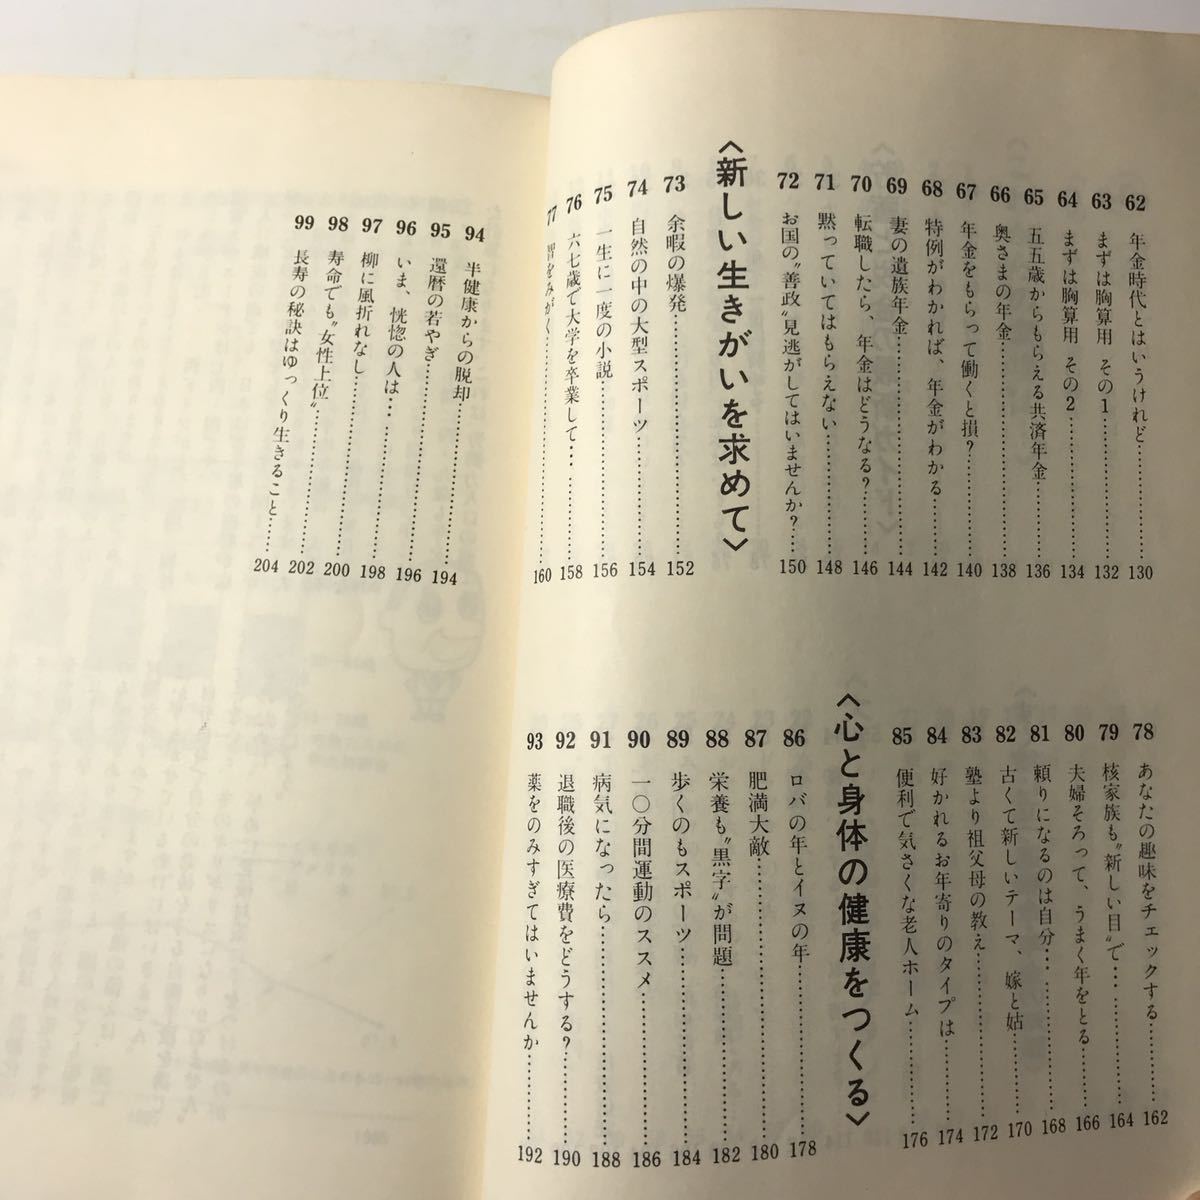 62 年金時代とはいうけれど……130
63 まずは胸算用 その1……132
64 まずは胸算用 その2……134
65 五五歳からもらえる共済年金……136
66 奥さまの年金……138
67 年金をもらって働くと損？……140
68 特例がわかれば、年金がわかる……142
69 妻の遺族年金……144
70 転職したら、年金はどうなる？……146
71 黙っていてはもらえない……148
72 お国の〝善政〟見逃がしてはいませんか？……150
〈新しい生きがいを求めて〉
73 余暇の爆発……152
74 自然の中の大型スポーツ……154
75 一生に一度の小説……156
76 六七歳で大学を卒業して……158
77 智をみがく……160
78 あなたの趣味をチェックする……162
79 核家族も〝新しい目〟で……164
80 夫婦そろって、うまく年をとる……166
81 頼りになるのは自分……168
82 古くて新しいテーマ、嫁と姑……170
83 塾より祖父母の教え……172
84 好かれるお年寄りのタイプは……174
85 便利で気さくな老人ホーム……176
〈心と身体の健康をつくる〉
86 ロバの年とイヌの年……178
87 肥満大敵……180
88 栄養も〝黒字〟が問題……182
89 歩くのもスポーツ……184
90 一〇分間運動のススメ……186
91 病気になったら……188
92 退職後の医療費をどうする？……190
93 薬をのみすぎてはいませんか……192
94 半健康からの脱却……194
95 還暦の若やぎ……196
96 いま、恍惚の人は……198
97 柳に風折れなし……200
98 寿命でも〝女性上位〟……202
99 長寿の秘訣はゆっくり生きること……204